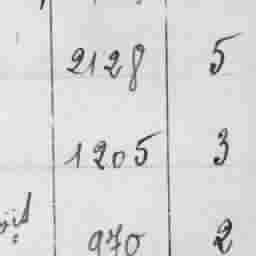 2128 5
1205 3
970 2